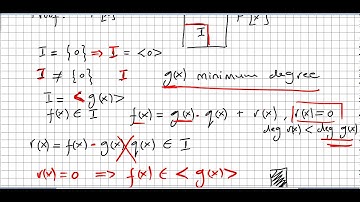 I F[x]
I = {0} ⇒ I = <0>
I ≠ {0} I g(x) minimum degree
I = <g(x)>
f(x) ∈ I f(x) = g(x)· q(x) + r(x), r(x)=0
deg r(x) < deg g(x)
r(x) = f(x) - g(x) q(x) ∈ I
r(x) = 0 ⇒ f(x) ∈ <g(x)>